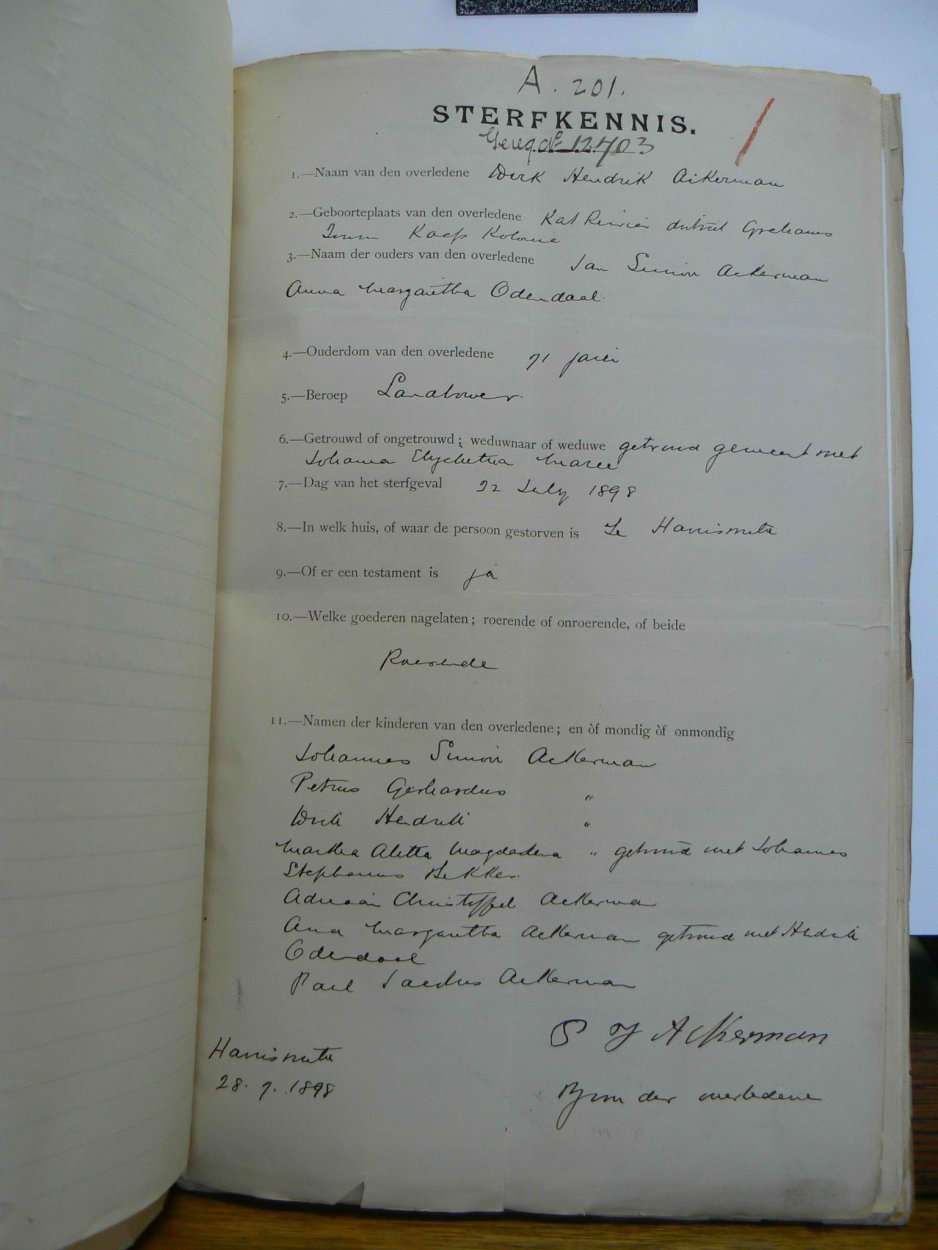 A. 201.
STERFKENNIS.
Gereg. No 12703
1.—Naam van den overledene Dirk Hendrik Ackerman
2.—Geboorteplaats van den overledene Kat Rivier district Grahams
Town Kaap Kolonie
3.—Naam der ouders van den overledene Jan Simon Ackerman
Anna Margaretha Odendaal
4.—Ouderdom van den overledene 71 jaren
5.—Beroep Landbouwer
6.—Getrouwd of ongetrouwd; weduwnaar of weduwe getrouwd geweest met
Johanna Maree
7.—Dag van het sterfgeval 22 July 1898
8.—In welk huis, of waar de persoon gestorven is Te Harrismith
9.—Of er een testament is ja
10.—Welke goederen nagelaten; roerende of onroerende, of beide
Roerende
11.—Namen der kinderen van den overledene; en òf mondig òf onmondig
Johannes Simon Ackerman
Petrus Gerhardus "
Dirk Hendrik "
Martha Aletta Magdalena " getrouwd met Johannes
Stephanus Bekker
Adriaan Christoffel Ackerman
Anna Margaretha Ackerman getrouwd met Hendrik
Odendaal
Paul Jacobus Ackerman
P J Ackerman
Zoon der overledene
Harrismith
28. 7. 1898